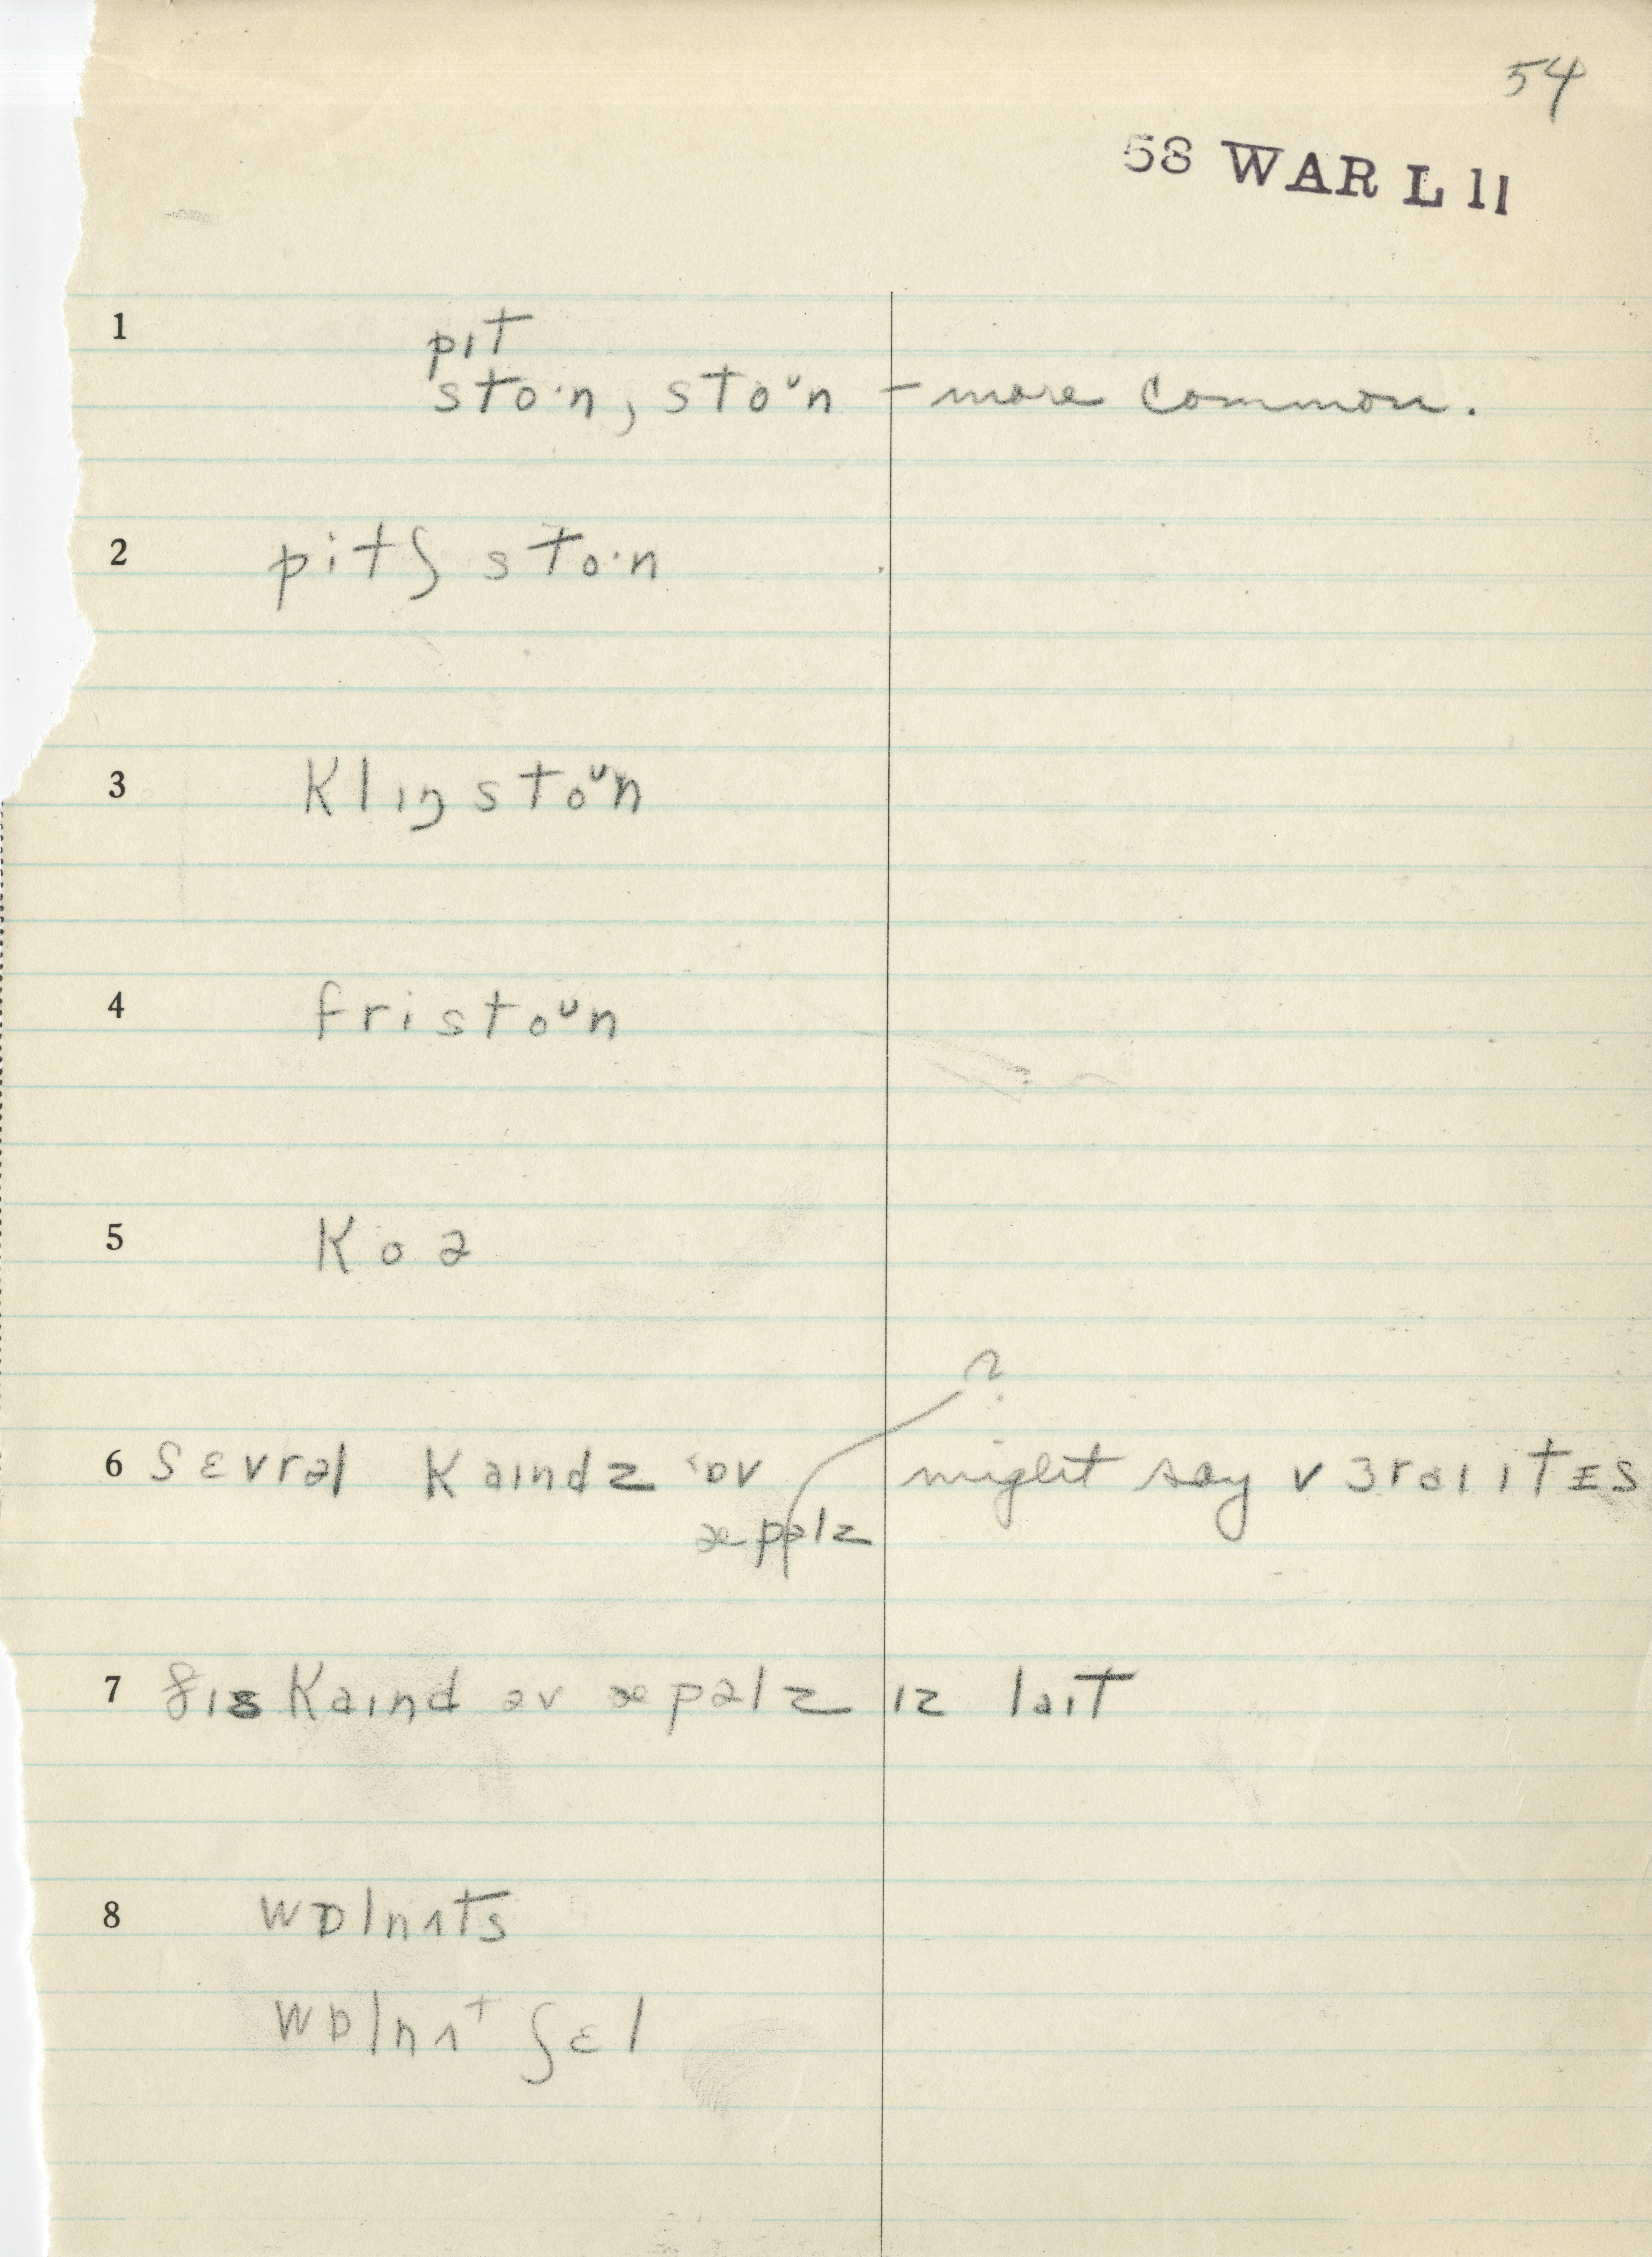 54
58 WAR L 11
1 pɪt
sto·n, stoᴜn – more common.
2 pitʃ sto·n
3 klɪŋ stoᴜn
4 fri stoᴜn
5 koə
?
6 sɛvrəl kaɪndz ɒv might say vɜraɪɪtɪs
æppəlz
7 ðɪs kaɪnd əv æpəlz ɪz laɪt
8 wɒlnʌts
wɒlnʌt ʃɛl